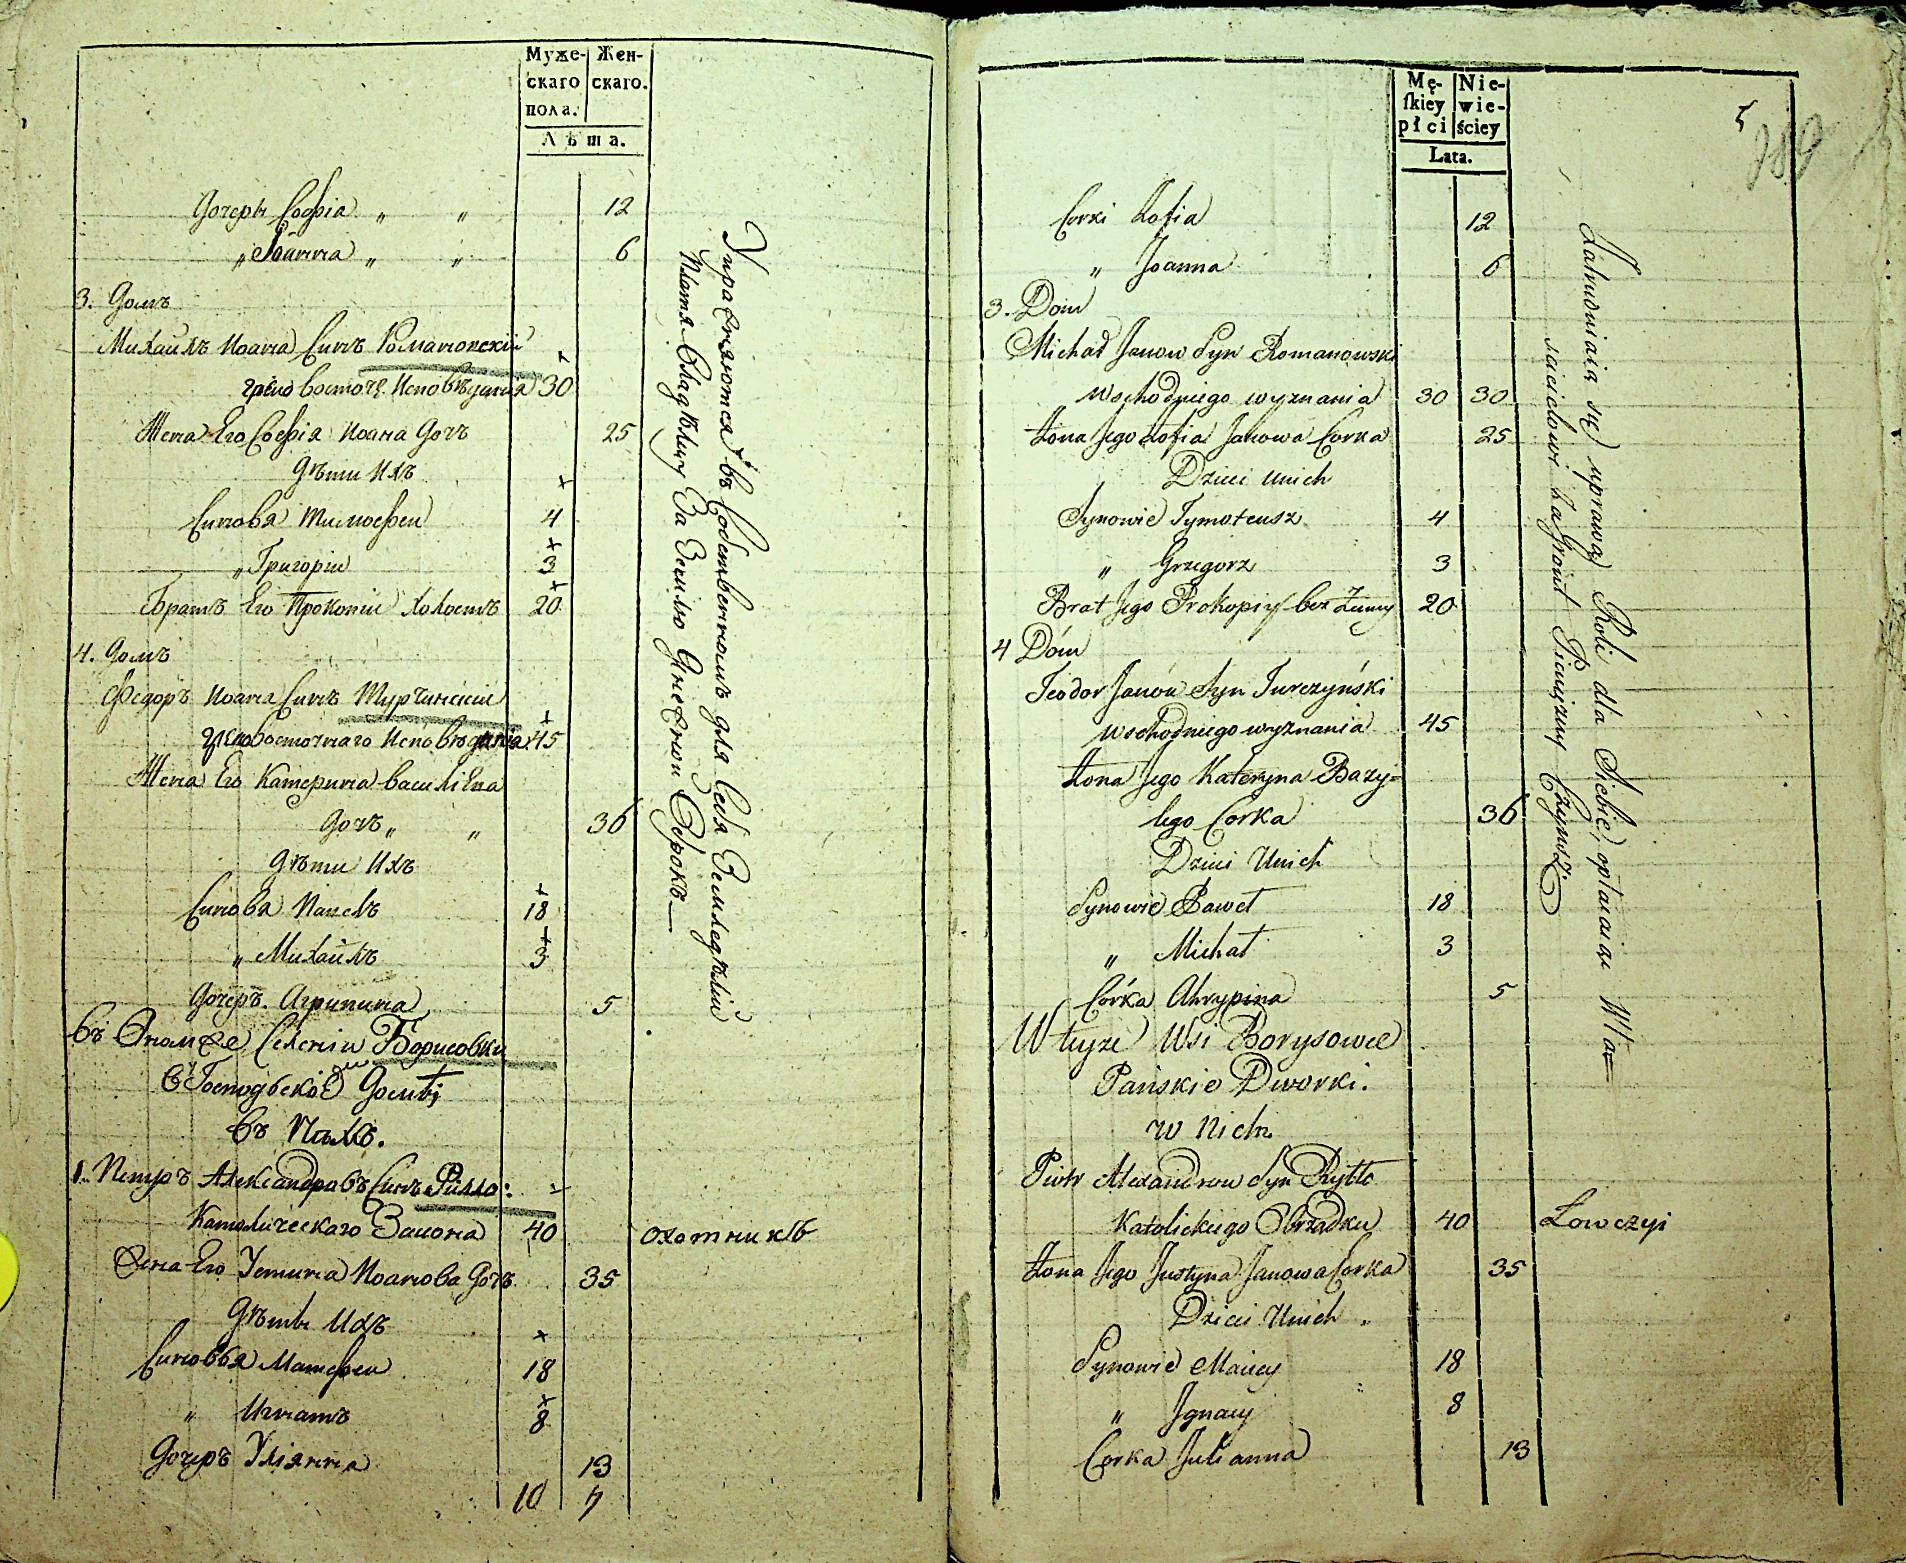 Муже-
скаго
пола.
Жен-
скаго.
Лѣта.
Дочерѣ Софія „ „ 12
„ Іоанна „ „ 6
3. Домъ
Михайлъ Иоана Синъ Романовскій
греко восточ. Исповѣданія 30
Жена Его Софія Иоана Дочъ 25
Дѣти Ихъ
Синовя Тимофеи 4
„ Григоріи 3
Братъ Его Прокопіи Холостъ 20
4. Домъ
Федоръ Иоана Синъ Турчинскіи
греко восточнаго Исповѣданія 45
Жена Его Катерина Василіева
Дочъ „ „ 36
Дѣти Ихъ
Синовя Павелъ 18
„ Михайлъ 3
Дочеръ Агрипина 5
Въ Этомже Селеніи Борисовки
въ Господскіе Домы
въ Нихъ.
1. Петръ Александровъ Синъ Рилло:
Католическаго Закона 40
Жена Его Устина Иоанова Дочъ 35
Дѣты Ихъ
Синовья Матфеи 18
„ Игнатъ 8
Дочеръ Уліянна 13
10 7
Упражняются въ Собственномъ для Себя Земледѣліи
Платя Владѣлцу За Землю Денежной Оброкъ
охотникъ
Mę-
skiey
płci
Nie-
wie-
ściey
Lata.
5
Corki Zofia 12
„ Joanna 6
3. Dom
Michał Janow Syn Romanowski
Wschodniego wyznania 30 30
Żona Jego Zofia Janowa Corka 25
Dzieci Unich
Synowie Tymoteusz 4
„ Grzegorz 3
Brat Jego Prokopiy bez Żenny 20
4 Dóm
Teodor Janów Syn Turczyński
Wschodniego wyznania 45
Żona Jego Kateryna Bazy-
lego Corka 36
Dzieci Unich
Synowie Paweł 18
„ Michał 3
Córka Ahrypina 5
W teyze Wsi Borysowce
Pańskie Dworki.
w Nich
Piotr Alexandrow Syn Ryłło
Katolickiego Obrządku 40
Żona Jego Justyna Janowa Corka 35
Dzieci Unich
Synowie Maciey 18
„ Jgnacy 8
Corka Julianna 13
Zatrudniaią się uprawą Roli dla Siebie, opłacaiąc Wła-
scicielowi za Grónt Pieniężny Czynsz
Łowczyi